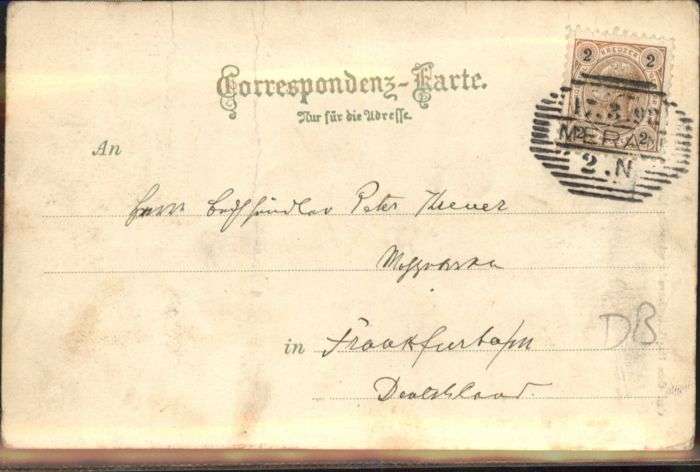 Correspondenz-Karte.
Nur für die Adresse.
2 KREUZER 2
17.3.98
MERAN
2.N
An
Herrn Buchhändler Peter
in Frankfurt a/m
Deutschland.
DB